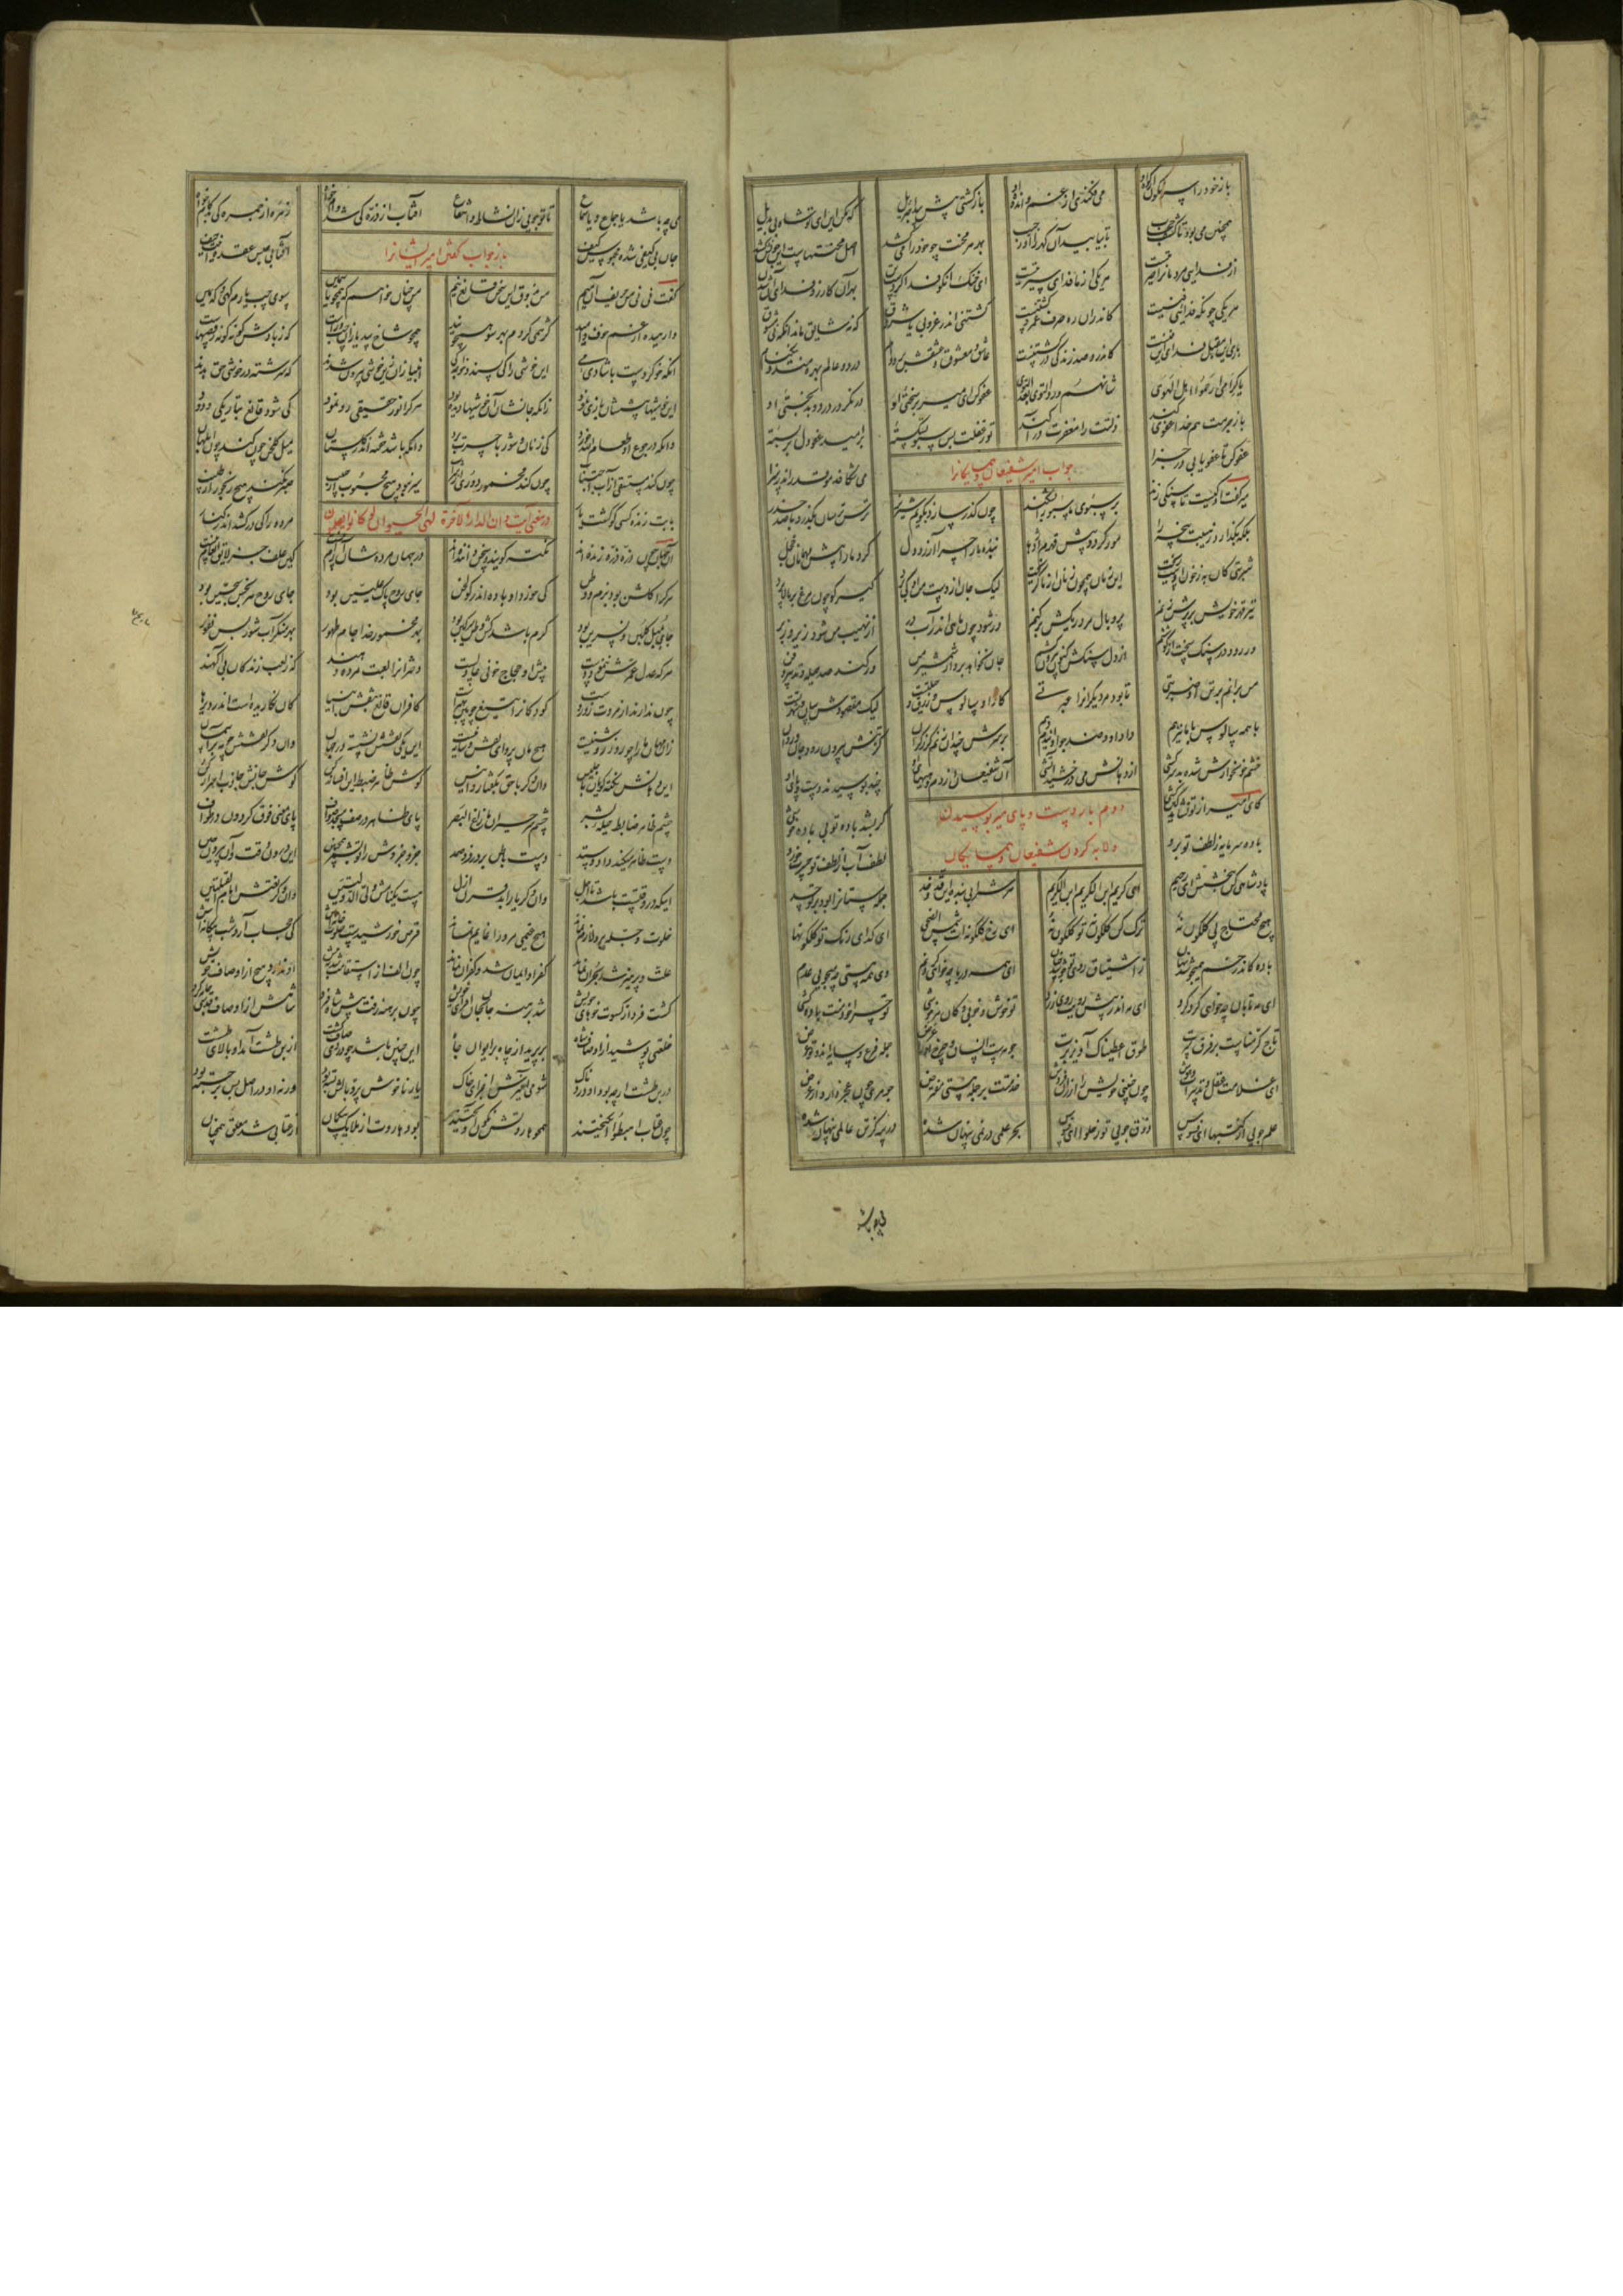 باز خود را سرنگون از کوه او می فکندی از غم و اندوه او باز گشتی پیش پیدا جبرئیل که مکن این ای تو شاه بی بدیل
همچنین می بود تا کشف حجاب تا بیابید آن گهر را او ز جیب بهر هر محنت چو خود را می کشد اصل محنتهاست این چونش کشد
از فدایی مردمان را حیرتیست هر یکی از ما فدای سیرتیست ای خنک آنکو فدا کردست تن بهر آن کارزد فدای آن شدن
هر یکی چونکه فدایی فنیست کاندران ره صرف عمر و کشتنیست کشتنی اندر غروبی یا شروق که نه شایق ماند آنگه نی مشوق
باری این مقبل فدای این فنست کاندرو صد زندگی در کشتنست عاشق و معشوق و عشقش بر دوام در دو عالم بهره مند و نیک نام
یا کرامی ارحموا اهل الهوی شانهم ورد التوی بعد التوی عفو کن ای میر بر سختی او در نگر در درد و بدبختی او
تا ز جرمت هم خدا عفوی کند زلتت را مغفرت در آکند تو ز غفلت بس سبو بشکسته در امید عفو دل در بسته
عفو کن تا عفو یابی در جزا می شکافد مو قدر اندر سزا
جواب امیر شفیعان و همسایگانرا
میر گفت او کیست تا سنگی زند بر سبوی ما سبو را بشکند چون گذر سازد ز کویم شیر نر ترس ترسان بگذرد با صد حذر
بنده ما را چرا آزرد دل کرد ما را پیش مهمانان خجل
شربتی کان به ز خون اوست ریخت این زمان همچون زنان از ما گریخت لیک جان از دست من او کی برد گیر کو چون مرغ بر بالا پرد
تیر قهر خویش بر پرش زنم پر و بال مرده ریگش بر کنم ور شود چون ماهی اندر آب در از نهیب من شود زیر و زبر
ور رود در سنگ سخت از کوششم از دل سنگش کنون بیرون کشم جان نخواهد برد از شمشیر من ور کند صد حیله و تدبیر و فن
من برانم بر تن او ضربتی تا بود مر دیگرانرا عبرتی کار او سالوس و زرق و حیلتست لیک مقصودش بیان شهرتست
با همه سالوس با ما نیز هم داد او و صد چو او این دم دهم بر سرش چندان زنم گرز گران کز تنش بیرون رود جان و روان
خشم خونخوارش شده بد سرکشی از دهانش می درخشید آتشی آن شفیعان از دم هیهای او چند بوسیدند دست و پای او
دوم بار دست و پای میر بوسیدن
و لابه کردن شفیعان و همسایگان
کای امیر از تو نشاید کین کشی گر بشد باده تو بی باده خوشی
باده سرمایه ز لطف تو برد لطف آب از لطف تو حسرت خورد
پادشاهی کن ببخشش ای رحیم ای کریم ابن الکریم ابن الکریم هر شرابی بنده این قد و خد جمله مستانرا بود بر تو حسد
هیچ محتاج می گلگون نه ترک کن گلگونه تو گلگونه ای رخ گلگونه ات شمس الضحی ای گدای رنگ تو گلگونها
باده کاندر خم همی جوشد نهان ز اشتیاق روی تو جوشد چنان ای همه دریا چه خواهی کرد نم وی همه هستی چه میجویی عدم
ای مه تابان چه خواهی گرد کرد ای مه اندر پیش رویت روی زرد تو خوش و خوبی و کان هر خوشی تو چرا خود منت باده کشی
تاج کرمناست بر فرق سرت طوق اعطیناک آویز برت جوهرست انسان و چرخ او را عرض جمله فرع و سایه اند و تو غرض
ای غلامت عقل و تدبیرات و هوش چون چنینی خویش را ارزان فروش خدمتت بر جمله هستی مفترض جوهری چون عجز دارد از عرض
علم جویی از کتبها ای فسوس ذوق جویی تو ز حلوا ای فسوس بحر علمی در نمی پنهان شده در سه گز تن عالمی پنهان شده
می چه باشد
می چه باشد یا جماع و یا سماع تا تو جویی زان نشاط و انتفاع آفتاب از ذره کی شد وام خواه زهره از خمره کی شد جام خواه
جان بی کیفی شده محبوس کیف آفتابی حبس عقده اینت حیف
باز جواب گفتن امیر ایشانرا
گفت نی نی من حریف آن میم من بذوق این خوشی قانع نیم من چنان خواهم که همچون یاسمین سوی چپ یا رم گهی گه یمین
وارهیده از همه خوف و امید کژ همی گردم بهر سو همچو بید همچو شاخ بید یازان چپ و راست که ز بادش گونه گونه رقصهاست
آنکه خو کردست با شادی می این خوشی را کی پسندد خواجه کی انبیا زان زین خوشی بیرون شدند که سرشته در خوشی حق بدند
زانکه جانشان آن خوشیها دیده بود این خوشیها پیششان بازی نمود هر کرا نور حقیقی رو نمود کی شود قانع بتاریکی و دود
وانکه در جوع او طعام الله خورد کی ز نان و شوربا حسرت برد وانکه باشد خفته اندر گلستان میل گلخن چون کند چون ابلهان
چون کند مستسقی از آب اجتناب چون کند مخمور دوری از شراب سیر نبود هیچ محبوب از حبیب صبر نکند هیچ رنجور از طبیب
در معنی آیت و ان الدار الاخرة لهی الحیوان لو کانوا یعلمون
با بت زنده کسی کو گشت یار مرده را کی در کشد اندر کنار
آن جهان چون ذره ذره زنده اند نکته گویند و سخن گوینده اند در جهان مرده شان آرام نیست کین علف جز لایق انعام نیست
هر کرا گلشن بود بزم و وطن کی خورد او باده اندر گولخن جای روح پاک علیین بود جای روح هر نجس سجین بود
جای بلبل گلبن و نسرین بود کرم باشد کش وطن سرگین بود بهر مخمور خدا جام طهور بهر منکر آب شور بس نفور
هر که عدل عمرش ننمود دست پیش او حجاج خونی عادلست دخترانرا لعبت مرده دهند که ز لعب زندگان بی آگهند
چون ندارند از مروت زور و دست کودکانرا تیغ چوبین بهترست کافران قانع بنقش انبیا کان نگاریده است اندر دیرها
زان مهان ما را چو روز روشنیست هیچ مان پروای نقش سایه نیست این یکی نقشش نشسته در جهان وان دگر نقشش چو مه بر آسمان
این دهانش نکته گویان با جلیس وان دگر با حق بگفتار و انیس گوش ظاهر ضبط این افسانه کن گوش جانش جاذب اسرار کن
چشم ظاهر ضابط حلیه بشر چشم سر حیران ما زاغ البصر پای ظاهر در صف مسجد صواف پای معنی فوق گردون در طواف
دست ظاهر میکند داد و ستد دست باطن بر در فرد صمد جزو جزوش را تو بشمر همچنین این درون وقت و آن بیرون حین
اینکه در وقتست باشد تا اجل وان دگر یار ابد قرن ازل هست یک نامش ولی الدولتین وان دگر نعتش امام القبلتین
خلوت و چله برو لازم نماند هیچ غیمی مر ورا غایم نماند قرص خورشیدست خلوت خانه اش کی حجاب آرد شب بیگانه اش
علت و پرهیز شد بحران نماند کفر او ایمان شد و کفران نماند چون الف از استقامت شد به پیش او ندارد هیچ از اوصاف خویش
گشت فرد از کسوت خوهای خویش شد برهنه جان بجان افزای خویش چون برهنه رفت پیش شاه فرد شاهش از اوصاف قدسی جامه کرد
خلعتی پوشید از اوصاف شاه بر پرید از چاه بر ایوان جاه این چنین باشد چو دردی صاف گشت از بن طشت آمد او بالای طشت
در بن طشت ار چه بود او دردناک شومی آمیزش اجزای خاک یار ناخوش پر و بالش بسته بود ورنه او در اصل بس برجسته بود
چون عتاب اهبطوا انگیختند همچو هاروتش نگون آویختند بود هاروت از ملایک بی گمان از عتابی شد معلق همچنان